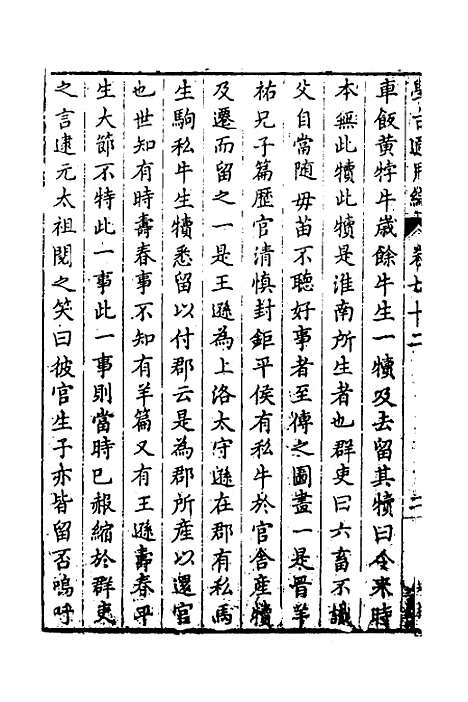 車飯黄牸牛歲餘牛生一犢及去留其犢曰令來時
本無此犢此犢是淮南所生者也群吏曰六畜不識
父自當隨母苗不聽好事者至傳之圖畫一是晋羊
祐兄子篇歴官清慎封鉅平侯有私牛於官舎産犢
及遷而留之一是王遜為上洛太守遜在郡有私馬
生駒私牛生犢悉留以付郡云是為郡所産以還官
也世知有時壽春事不知有羊篇又有王遜壽春平
生大節不特此一事此一事則當時已赧縮於群吏
之言逮元太祖閱之笑曰彼官生子亦皆留否嗚呼
卷七十二
二